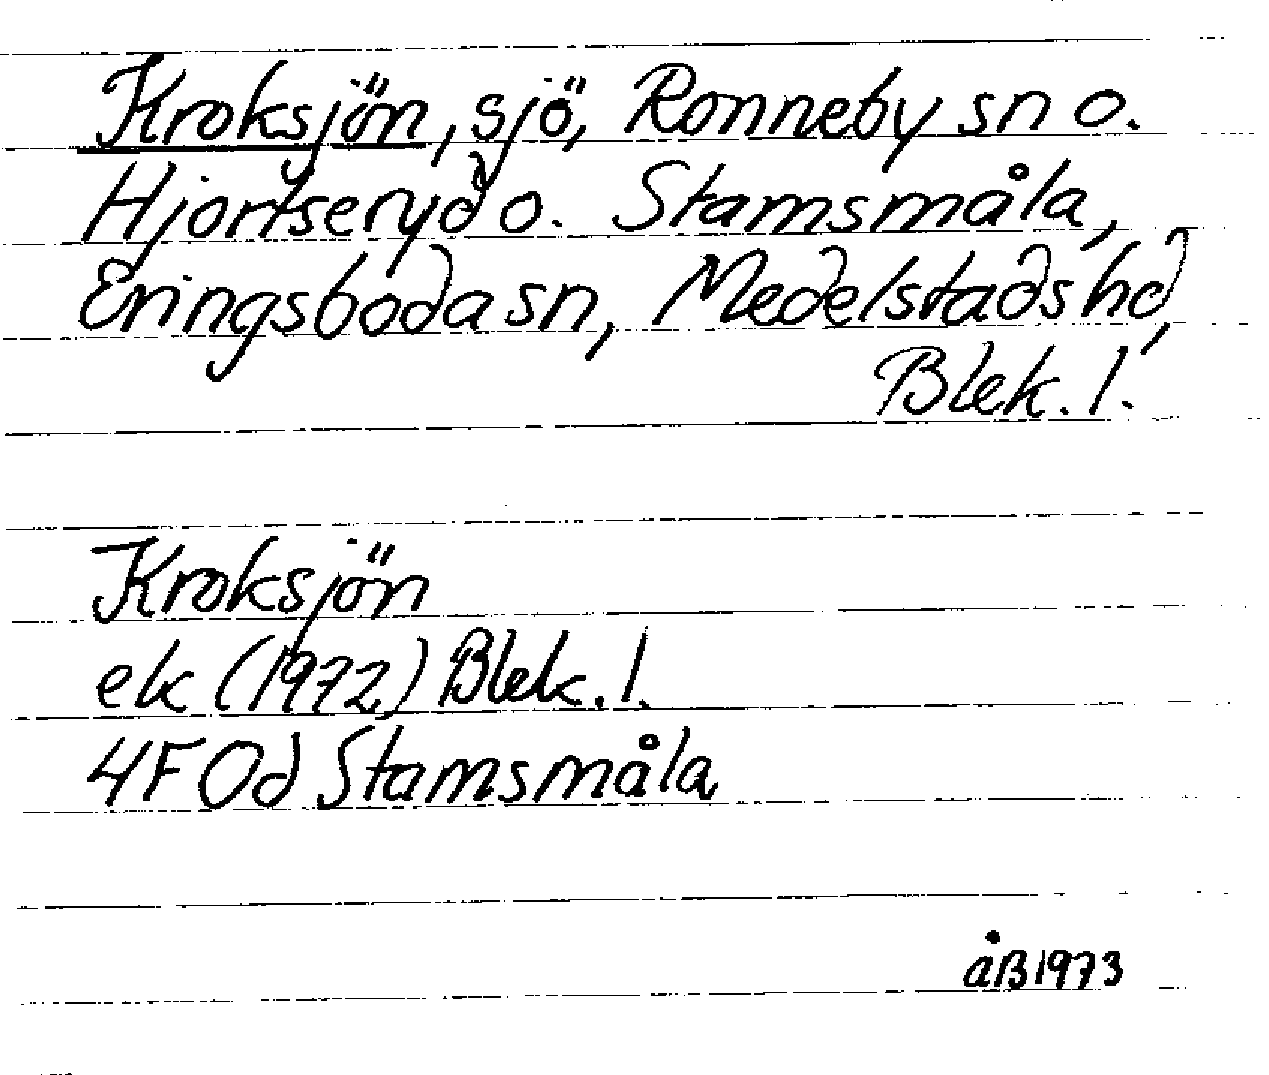 Kroksjön, sjö, Ronneby sn o.
Hjortseryd o. Stamsmåla,
Eringsboda sn, Medelstads hd,
Blek. l.
Kroksjön
ek (1972) Blek. l.
4F 0d Stamsmåla
åB 1973